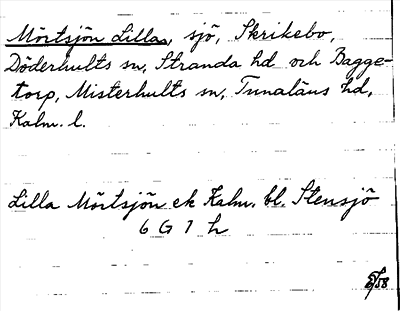 Mörtsjön Lilla, sjö, Skrikebo,
Döderhults sn, Stranda hd och Bagge-
torp, Misterhults sn, Tunaläns hd,
Kalm. l.
Lilla Mörtsjön ek Kalm. bl. Stensjö
6 G 7 h